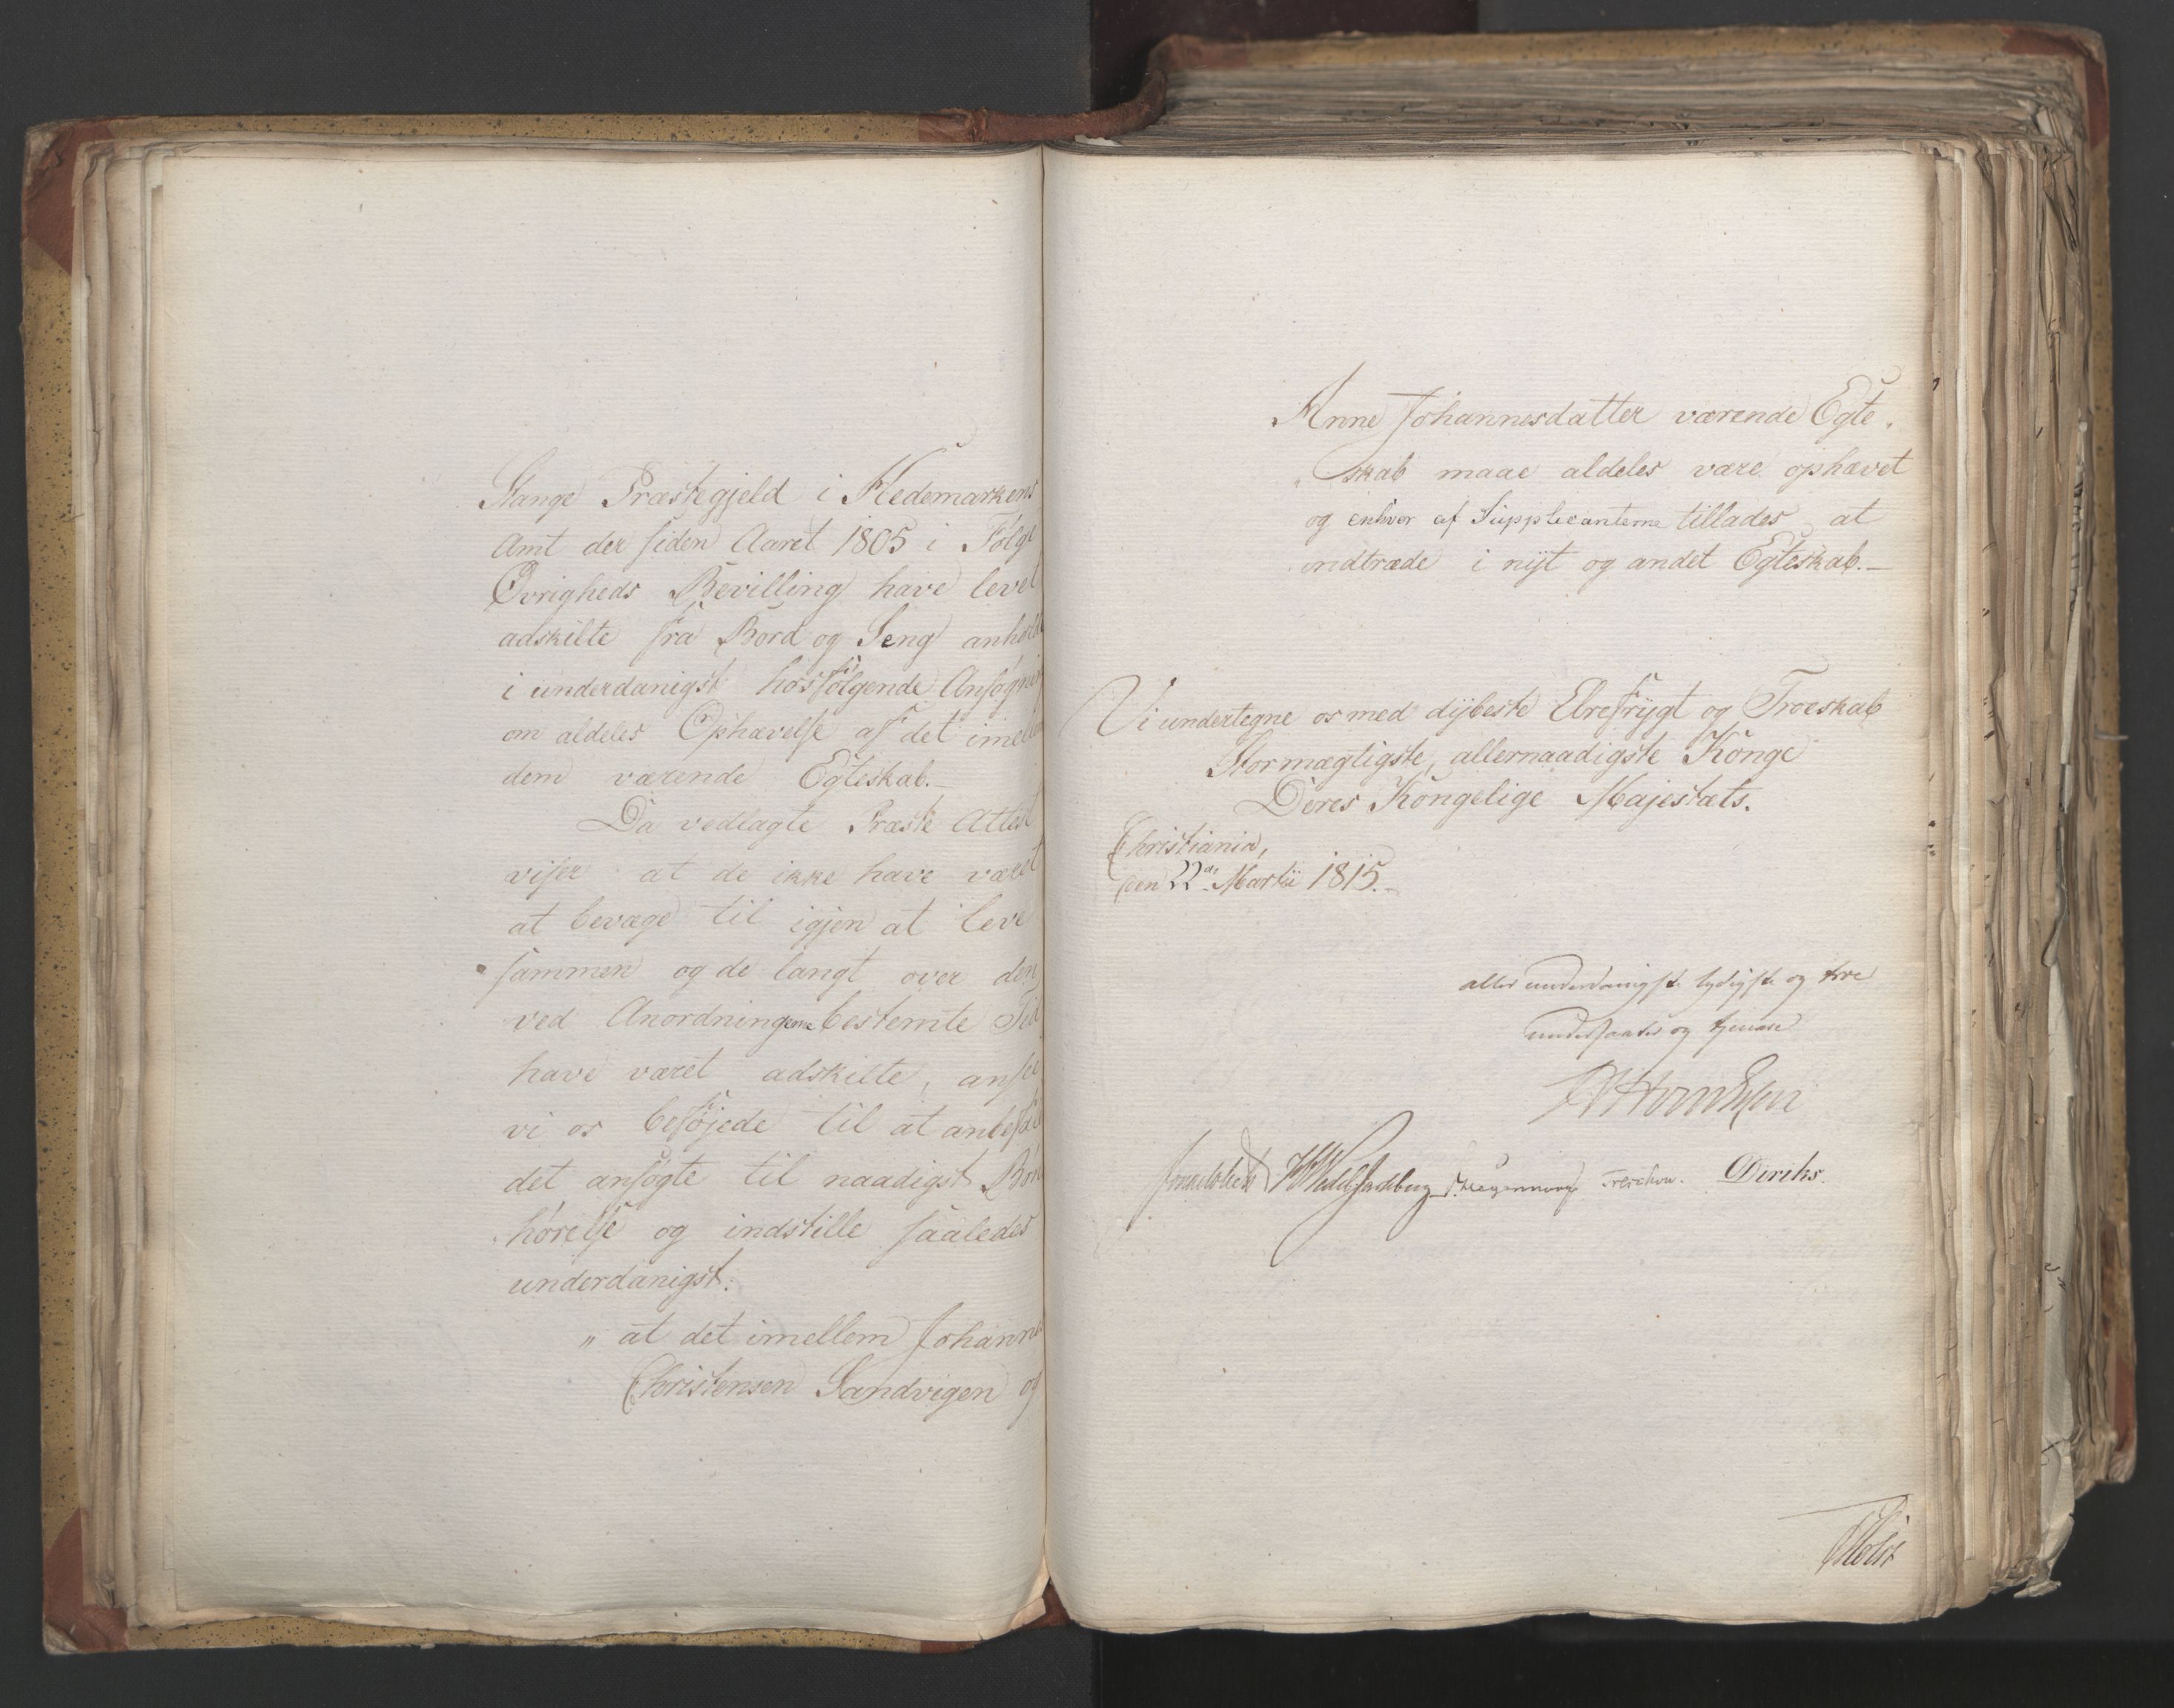 Stange Præstegjeld i Hedemarkens
Amt der siden Aaret 1805 i Følge
Øvrigheds Bevilling have levet
adskilte fra Bord og Seng anholde
i underdanigst hosfølgende Ansøgning
om aldeles Ophævelse af det imellem
dem værende Egteskab.–
Da vedlagte Præste Attest
viser at de ikke have været
at bevæge til igjen at leve
sammen og de langt over den
ved Anordningerne bestemte Tid
have været adskilte, ansee
vi os beføjede til at anbefale
det ansøgte til naadigst Bøn
hørelse og indstille saaledes
underdanigst:
„ at det imellem Johannes
Christensen Sandvigen og
Anne Johannesdatter værende Egte
„ skab maae aldeles være ophævet
og enhver af Supplicanterne tillades at
indtræde i nÿt og andet Egteskab.–
Vi undertegne os med dÿbeste Ærefrÿgt og Troeskab
Stormægtigste, allernaadigste Konge
Deres Kongelige Majestæts.
Christiania,
den 22de Martii 1815.–
allerunderdanigste lydigste og troe
undersaatter og tjenere
Sommerhielm
HWedel Jarlsberg P. Motzfeldt Treschow. Diriks.
Holst